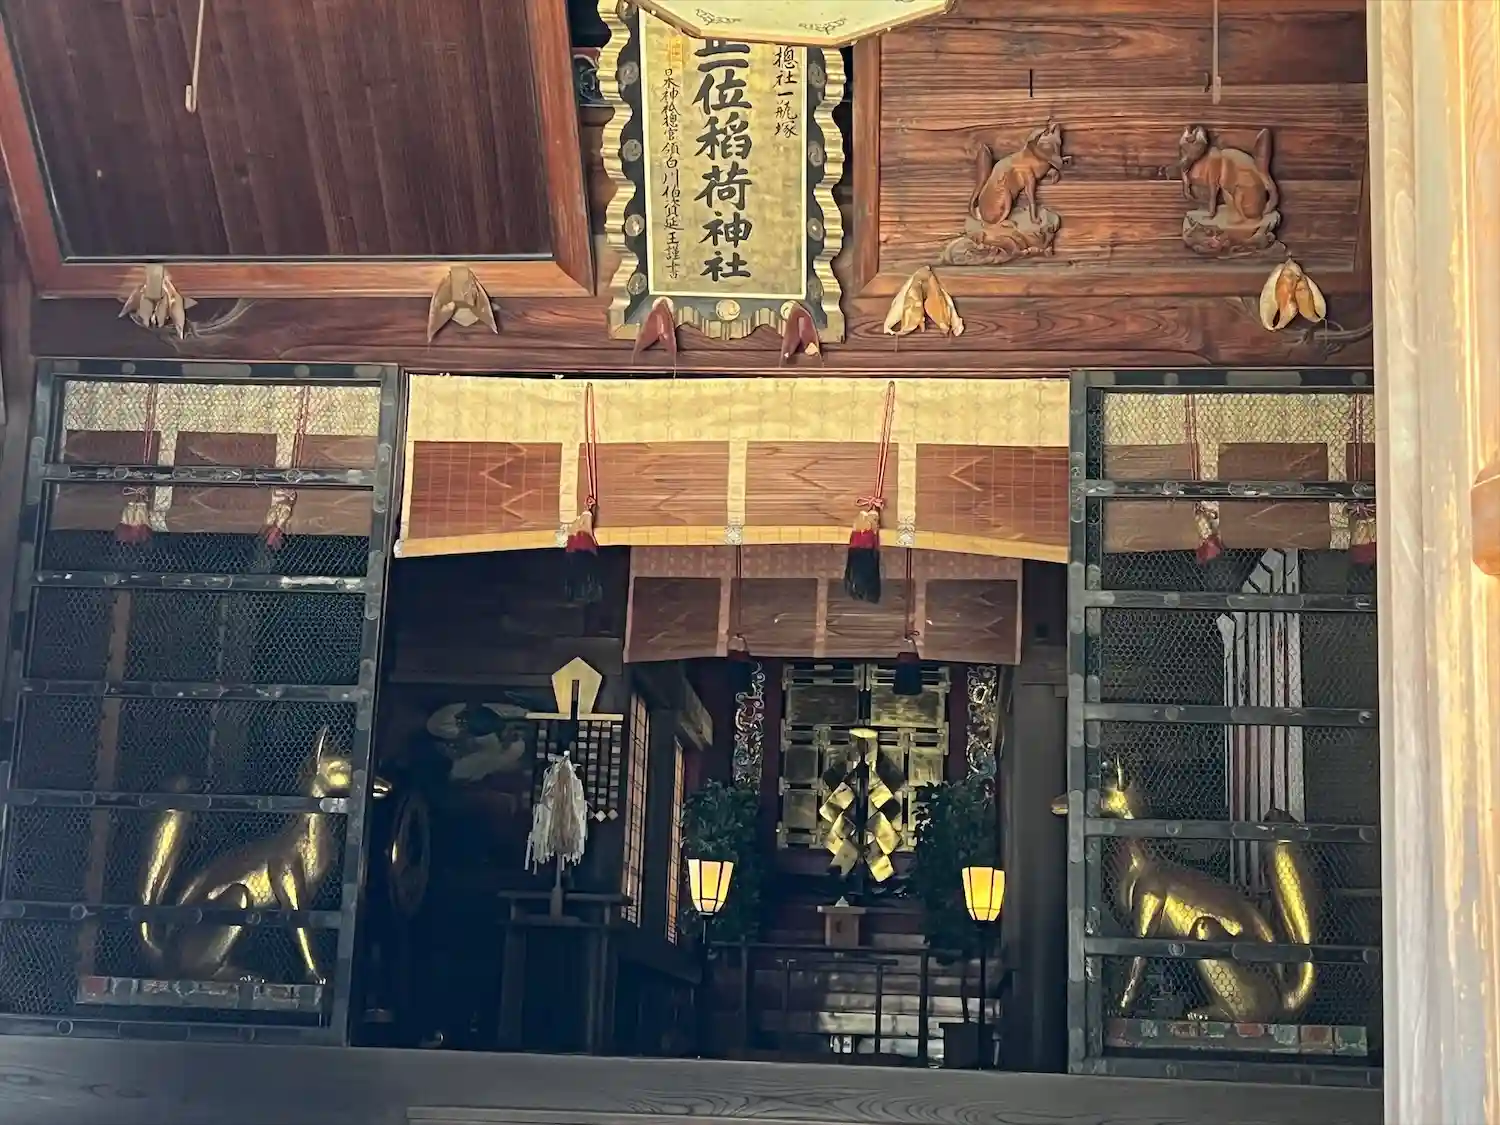 總社一瓶塚
正一位稻荷神社
日本神祇總官領白川伯資延王謹書